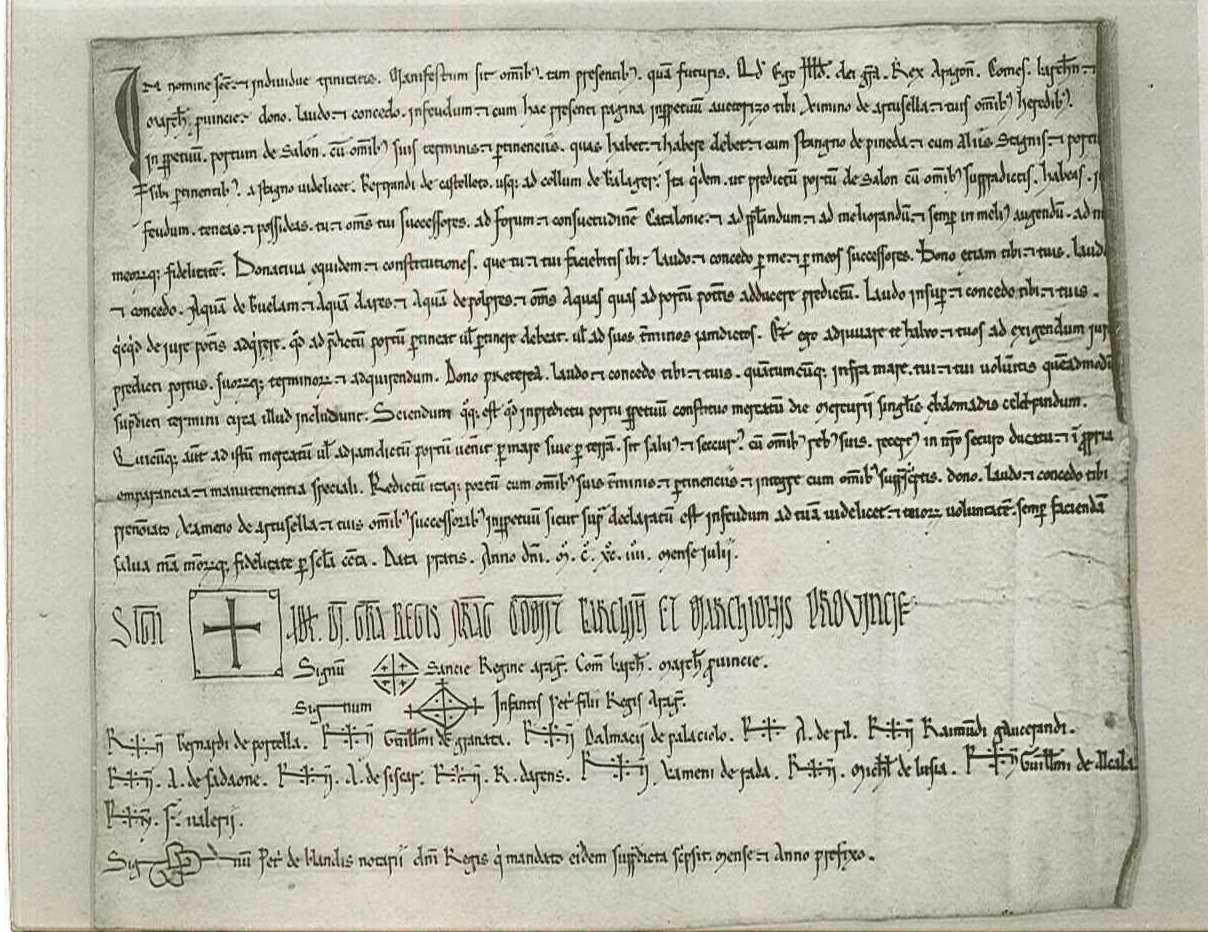 In nomine scē ⁊ individue trinitatis. Manifestum sit omībꝰ. tam presentibꝰ. quā futuris. Qd̄ Ego Ildf̄. dei gr̄a. Rex Aragoñ. Comes. barchn̄ ⁊
march̄. ꝓuincie. dono. laudo. ⁊ concedo. infeudum. ⁊ cum hac presenti pagina inꝑpetuū auctorizo tibi Eximino de artusella. ⁊ tuis omībꝰ heredibꝰ.
in ꝑpetuū. portum de Salon. cū omībꝰ suis terminis ⁊ ꝑtinenciis. quas habet. ⁊ habere debet. ⁊ cum stangno de pineda. ⁊ cum Aliis Stagnis. ⁊
sibi ꝑtinentibꝰ. a stagno uidelicet. berengandi de castelleto. usqꝫ ad collum de balager. Ita qidem. ut predictū portū de Salon cū omībꝰ supradictis. habeas.
feudum. teneas ⁊ possideas. tu. ⁊ om̄s tui successores. ad forum. ⁊ consuetudinē Catalonie. ⁊ ad ppl̄andum ⁊ ad meliorandū. ⁊ semꝑ in meliꝰ augendū. ad
meorꝫqꝫ fidelitatē. Donatiua equidem. ⁊ constitutiones. que tu ⁊ tui faciebitis ibi. laudo. ⁊ concedo ꝑ me. ⁊ ꝑ meos successores. Dono etiam tibi ⁊ tuis.
⁊ concedo. Aquā de buelam. ⁊ Aquā dares. ⁊ Aquā de polpres. ⁊ om̄s Aquas quas ad portū pot̄is adducere predictū. Laudo insuꝑ. ⁊ concedo tibi. ⁊ tuis.
qicqid de iure pot̄is adqirere. qd̄ ad p̄dictū portū ꝑtineat ul̄ ꝑtinere debeat. ul̄ ad suos t̄minos iamdictos. Et ego adiuuare te habeo. ⁊ tuos ad exigendum
predicti portus. suorꝫqꝫ terminorꝫ. ⁊ adquirendum. Dono preterea. laudo. ⁊ concedo tibi ⁊ tuis. quātumcūqꝫ infra mare. tui. ⁊ tui uolūritis
sup̄dicti termini circa illud includunt. Sciendum qqꝫ est qd̄ inpredictu portu ꝑpetuū constituo mercatū die Mercurii singlis ebdomadis celebrandum.
Quicūqꝫ aūt ad istū mercatū ul̄ adiamdictū portū uēnit ꝑ mare siue ꝑ terrā. sit saluꝰ. ⁊ securꝰ. cū omībꝰ rebꝰ suis. receptꝰ in nr̄o securo ducatu. ⁊ ī ꝓpria
emparancia. ⁊ manutenentia speciali. Redictū itaqꝫ portū cum omībꝰ suis t̄minis ⁊ ꝑtinenciis. ⁊ integre cum omībꝰ suprasc̄ptis. dono. laudo. ⁊ concedo tibi
prenoīato Exameno de artusella. ⁊ tuis omībꝰ successoribꝰ inꝑpetuū sicut supra declaratū est infeudum ad tuā uidelicet. ⁊ tuorꝫ voluntatē. semꝑ faciendā
salua mā meorꝫqꝫ fidelitate ꝑ scl̄a cc̄ta. Data pratis. Anno dn̄i. M̊. C̊. XC̊. IIII. Mense Iulii.
Sign̄ Ildf. DĪ. GR̄A REGIS ARAḠ COMIT̄ BARCHN̄ ET MARCHIONIS PROVINCIE
Signū Sancie Regine araḡ. Com̄ barch̄. march̄ ꝓuincie.
Signum Infantis Petri filii Regis Araḡ.
Sig+n̄ bernardi de portella. Sig+n̄ Guillmi de granata. Sig+n̄ Dalmacii de palaciolo. Sig+ A. de fil. Sig+n̄ Raimūdi gaucerandi.
Sig+n̄. A. de sadaone. Sig+n̄. A. de siscar. Sig+n̄. R. darens. Sig+n̄. Exameni de rada. Sig+n̄. Michl̄ de lusia. Sig+n̄ Guillmi de Alcala
Sig+n̄. F. ualerii.
Signū Petri de blandis notarii dn̄i Regis qi mandato eidem supradicta sc̄psit. Mense. ⁊ Anno prefixo.